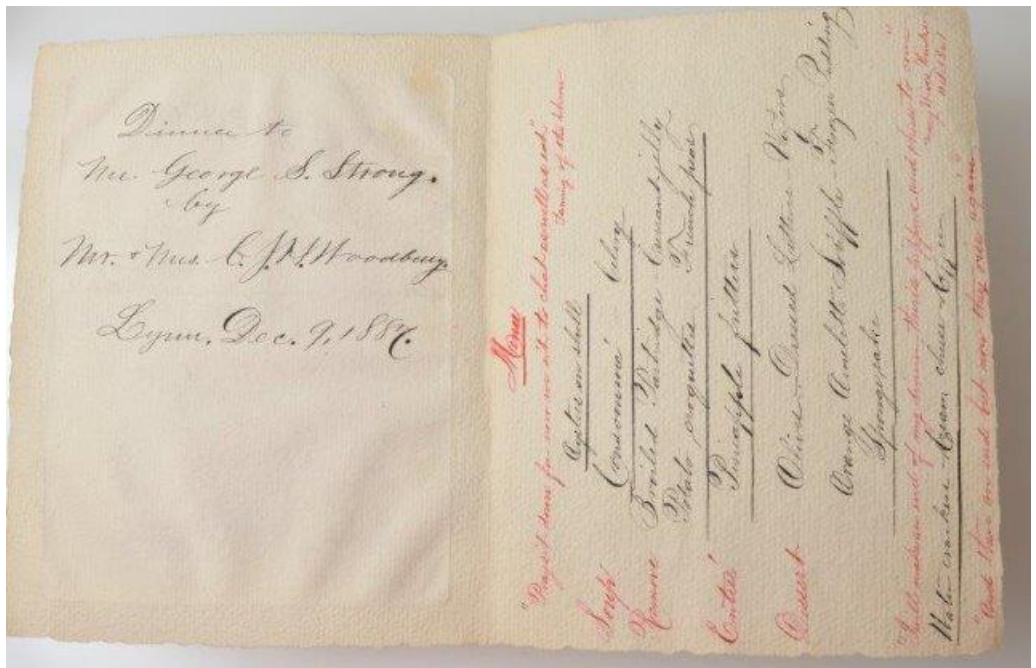 Dinner to
Mr. George S. Strong.
by
Mr. & Mrs. C. J. H. Woodbury.
Lynn, Dec. 9, 1887.
Menu
"Pray sit down for now we sit to chat as well as eat"
Taming of the Shrew
Oysters on shell
Soup Consommé Celery
Remove Broiled Partridge Currant jelly
Potato croquettes French peas
Entreé Pineapple fritters
Dessert Olives Dressed Lettuce
Orange Omelette Soufflé Frozen Pudding
Sponge cake
make an end of my dinner, there's pippins and cheese to come"
Merry Wives Windsor
Nuts crackers Cream cheese Coffee
an end but now they rise again"